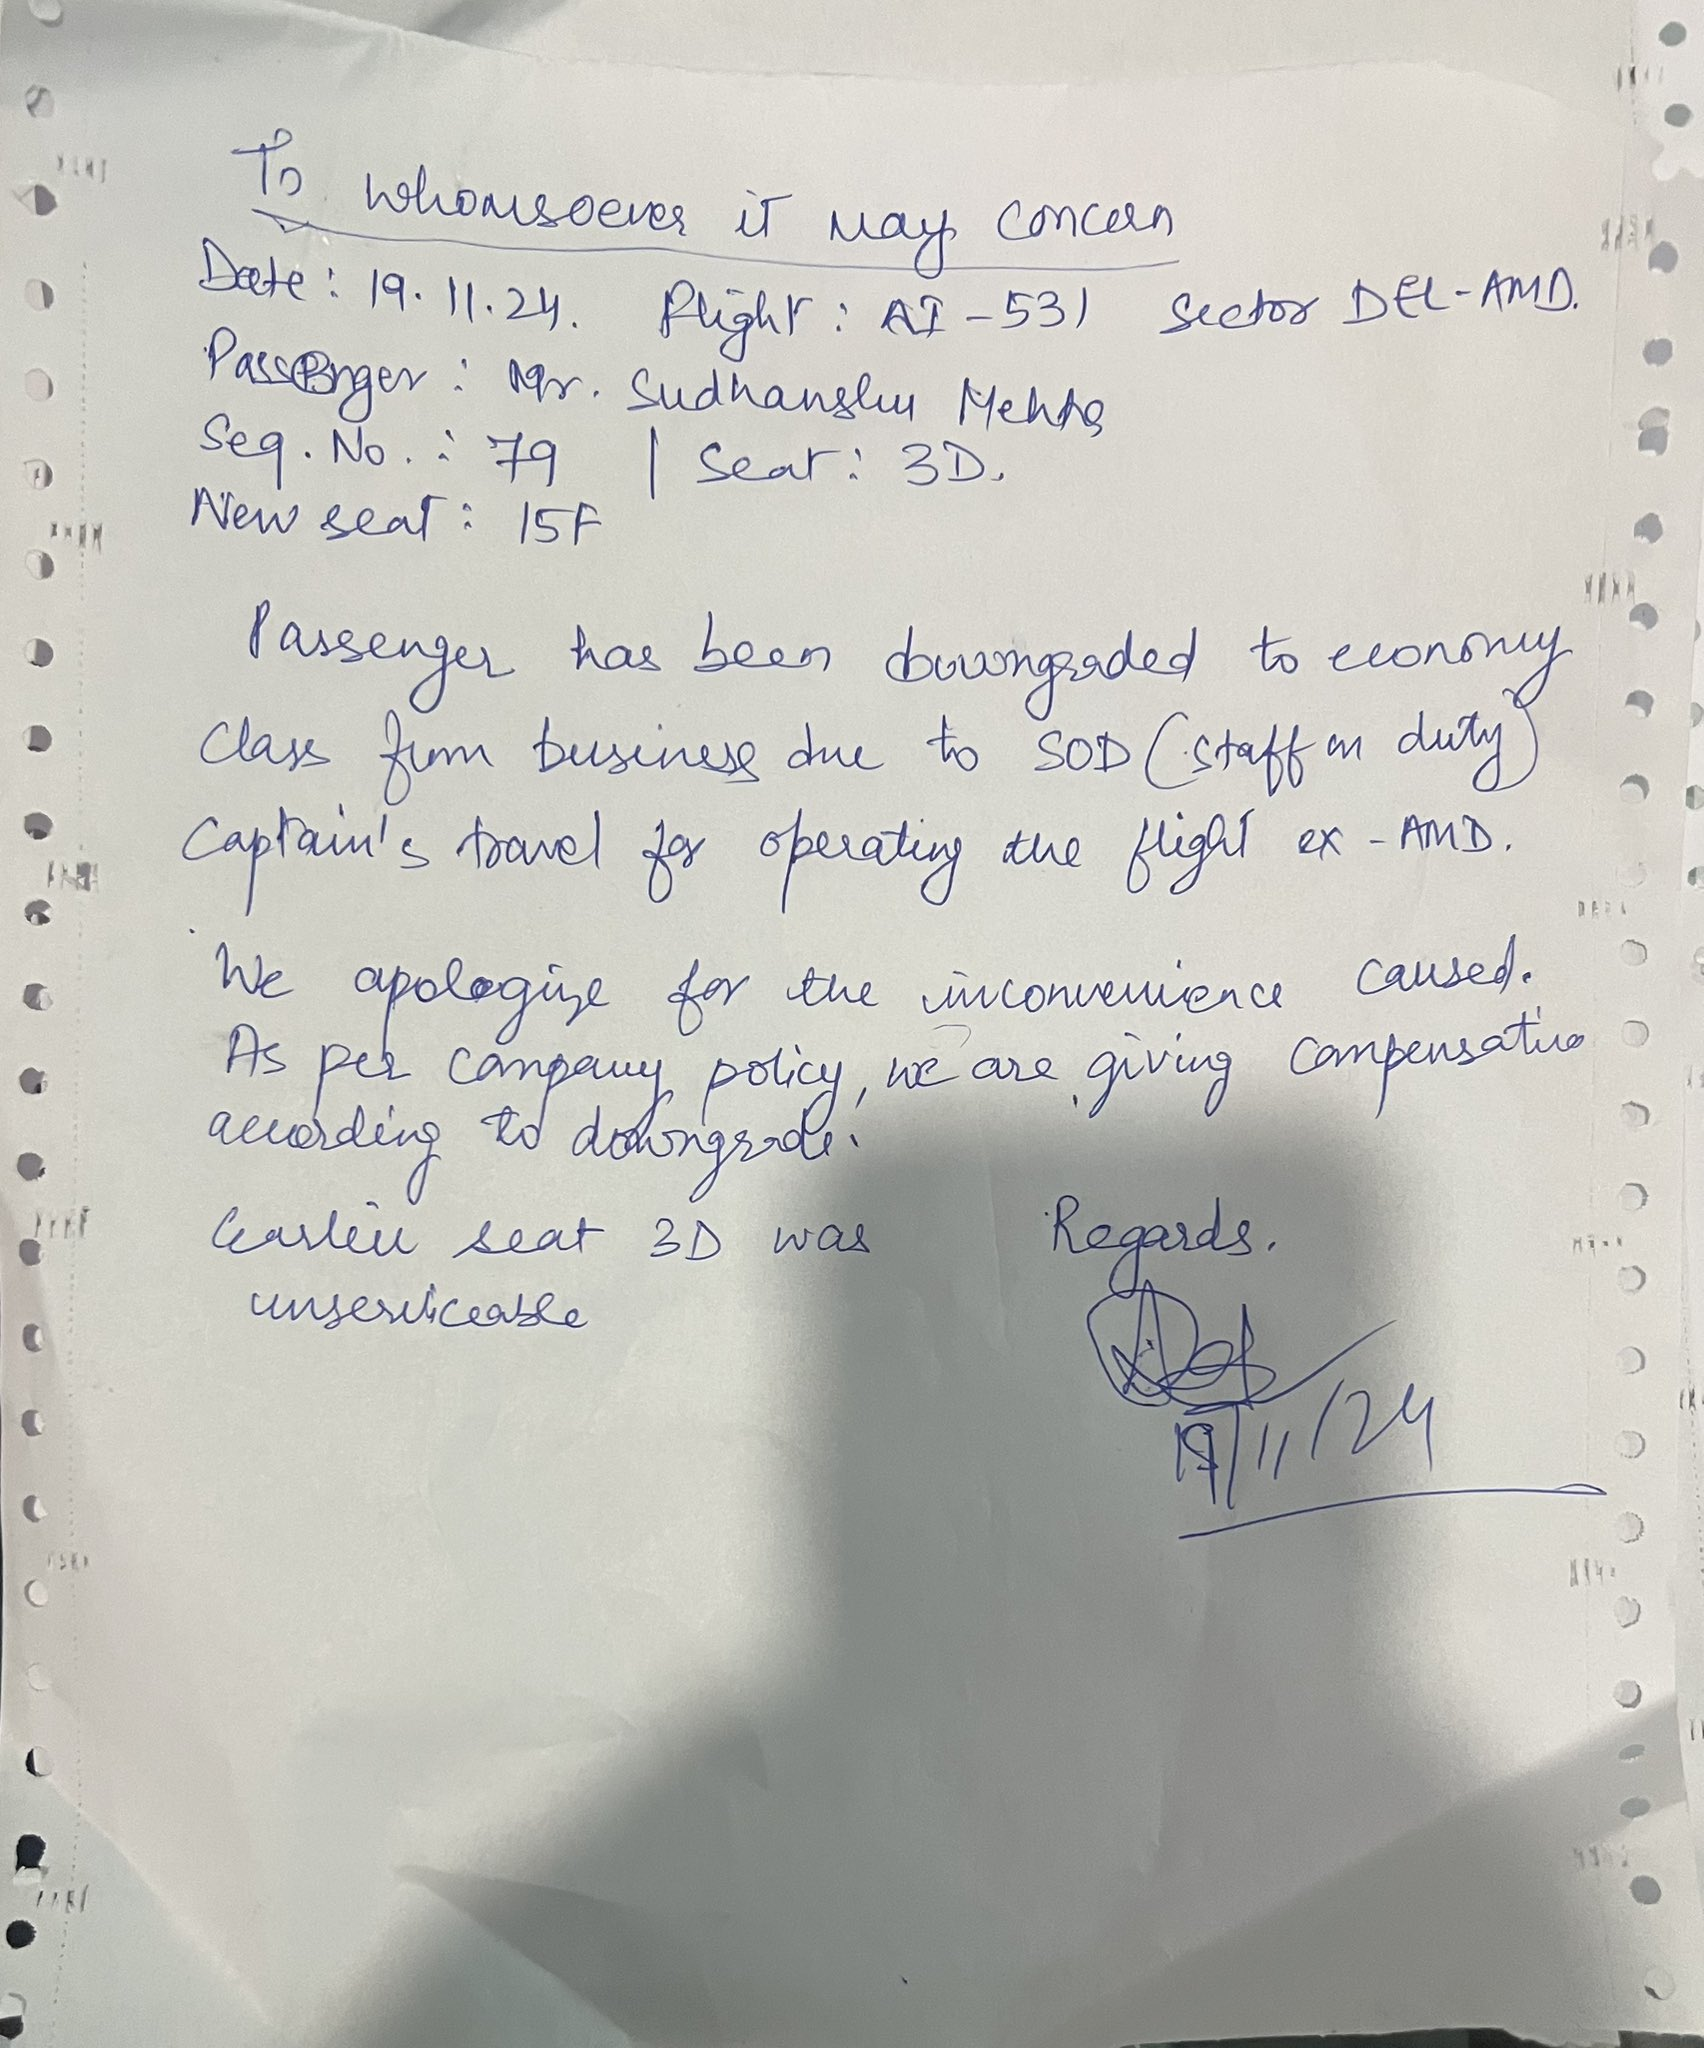 To whomsoever it may concern
Date: 19.11.24. Flight: AI-531 Sector DEL-AMD.
Passenger: Mr. Sudhanshu Mehta
Seq. No.: 79 | Seat: 3D.
New seat: 15F
Passenger has been downgraded to economy
class from business due to SOD (staff on duty)
Captain's travel for operating the flight ex-AMD.
We apologize for the inconvenience caused.
As per company policy, we are giving compensation
according to downgrade.
Earlier seat 3D was
unserviceable
Regards.
19/11/24